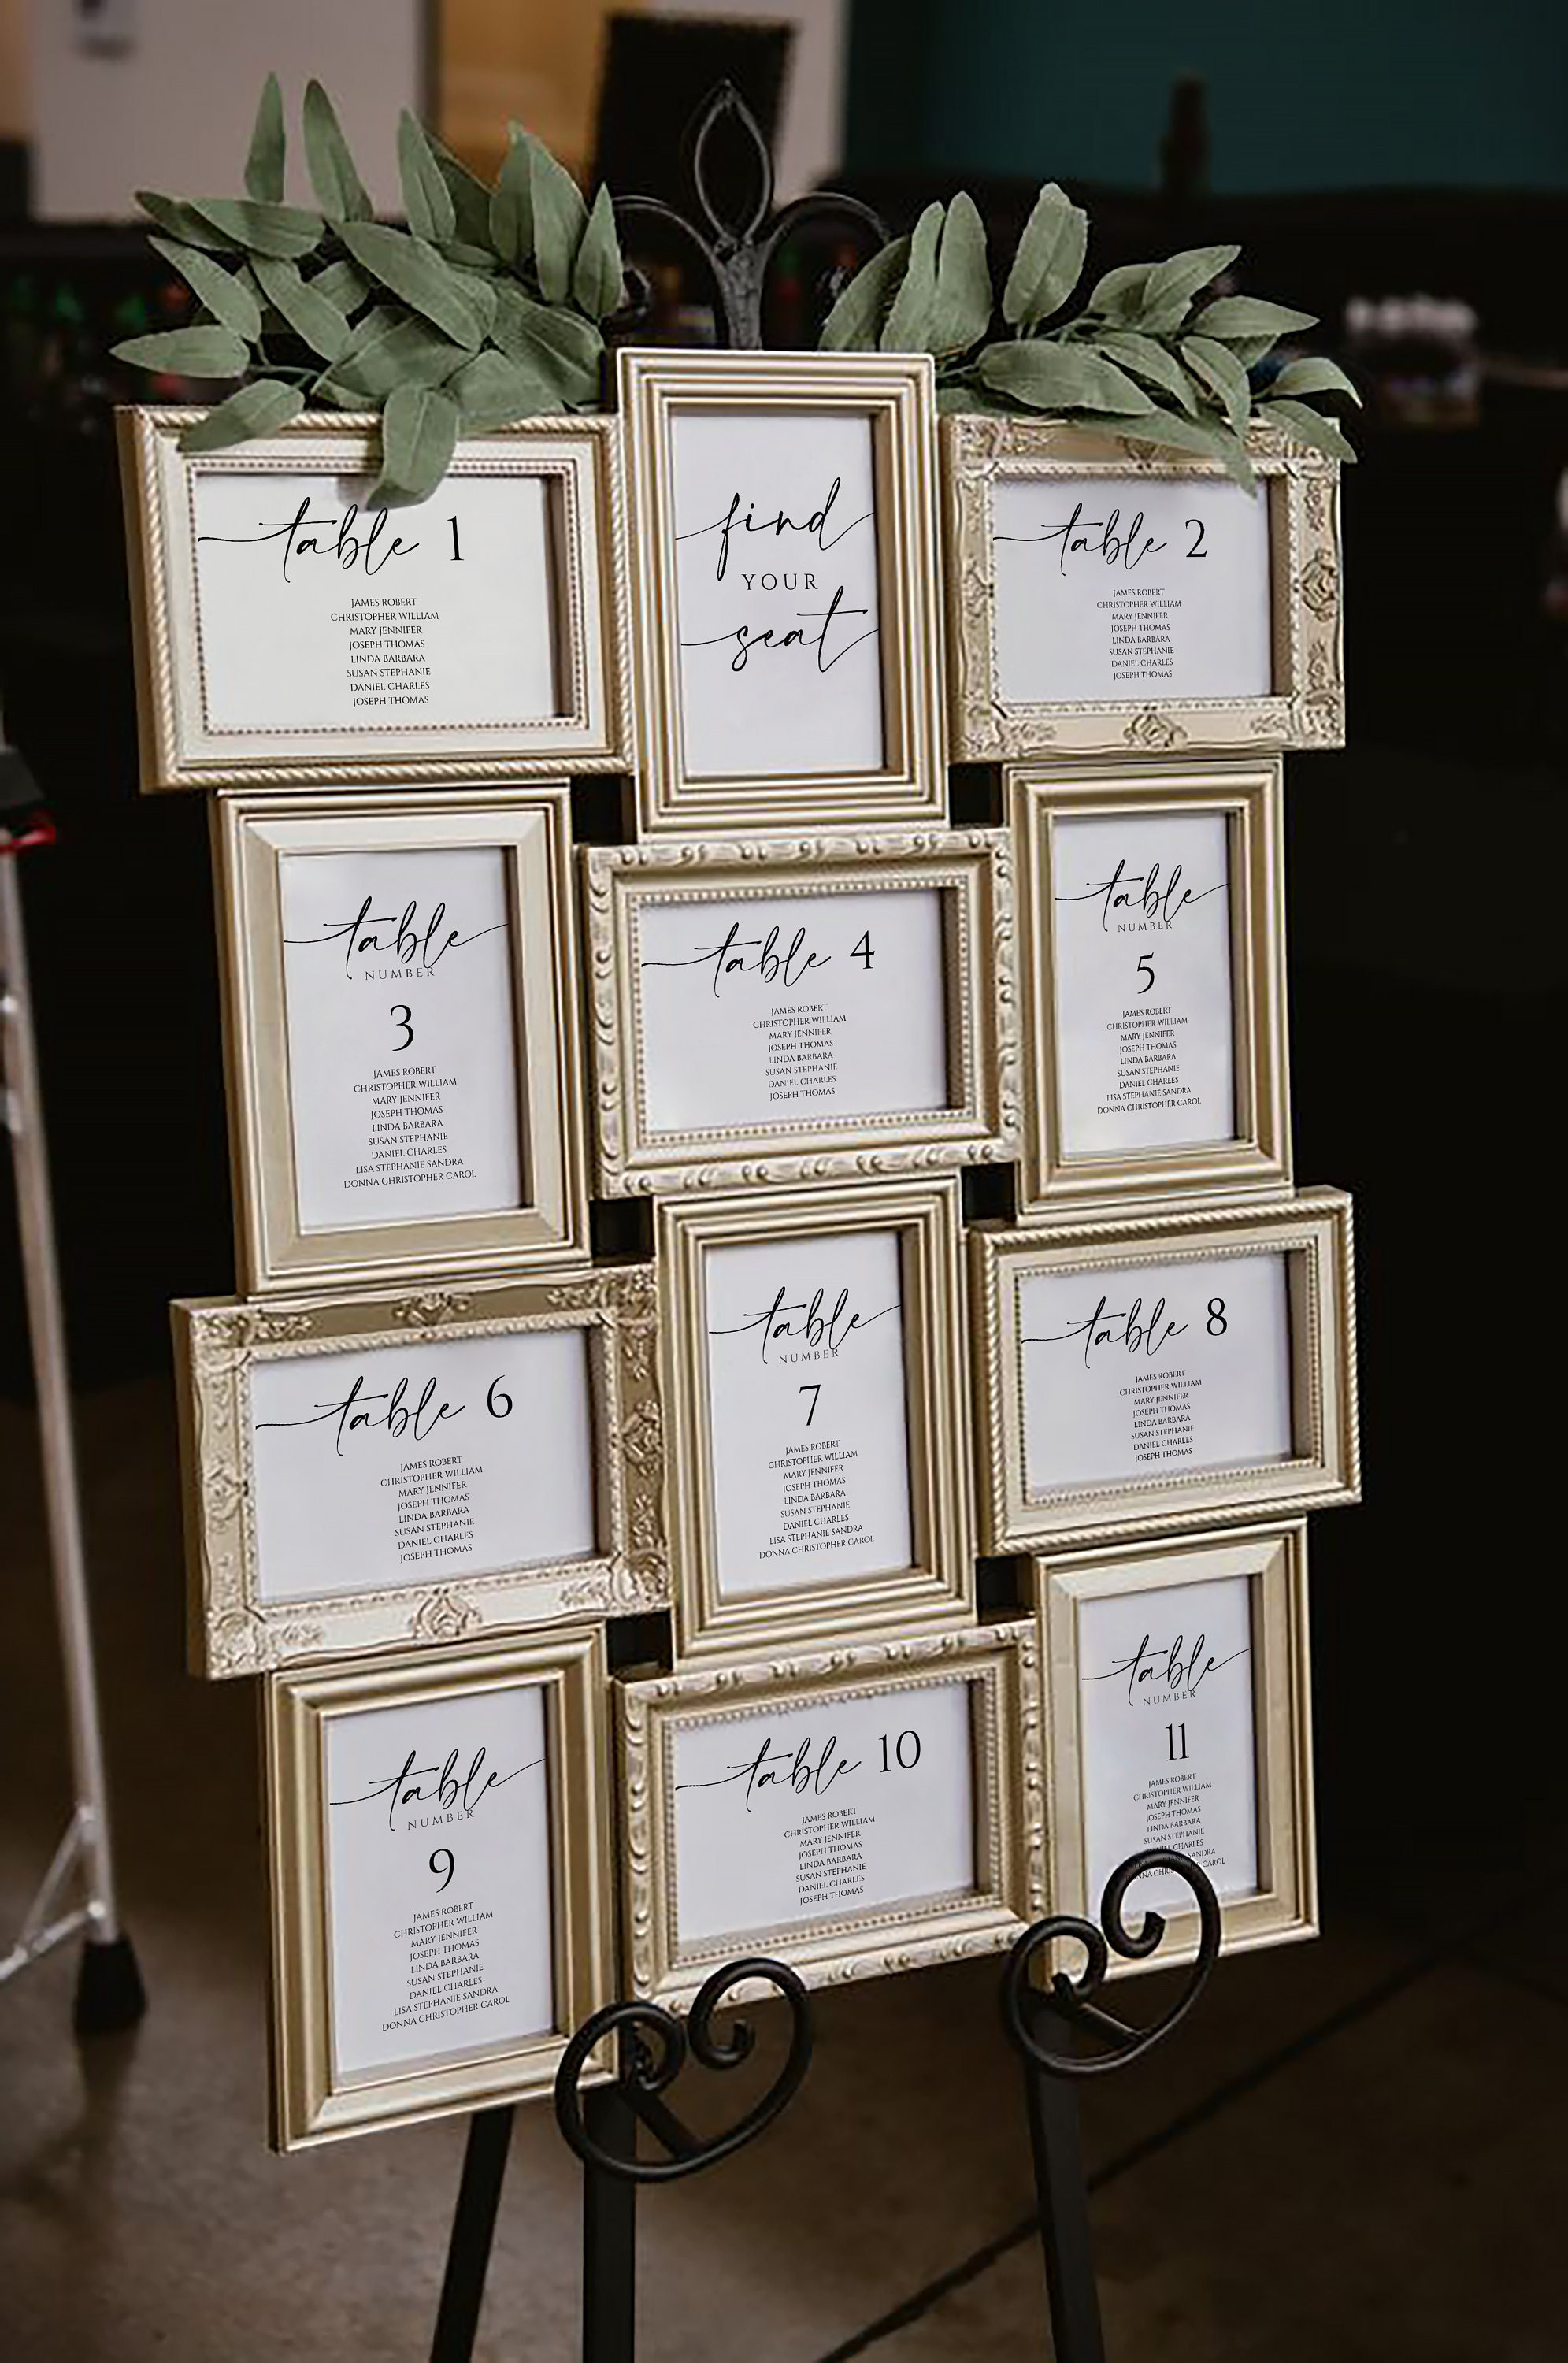 table 1
JAMES ROBERT
CHRISTOPHER WILLIAM
MARY JENNIFER
JOSEPH THOMAS
LINDA BARBARA
SUSAN STEPHANIE
DANIEL CHARLES
JOSEPH THOMAS
find
YOUR
seat
table 2
JAMES ROBERT
CHRISTOPHER WILLIAM
MARY JENNIFER
JOSEPH THOMAS
LINDA BARBARA
SUSAN STEPHANIE
DANIEL CHARLES
JOSEPH THOMAS
table
NUMBER
3
JAMES ROBERT
CHRISTOPHER WILLIAM
MARY JENNIFER
JOSEPH THOMAS
LINDA BARBARA
SUSAN STEPHANIE
DANIEL CHARLES
LISA STEPHANIE SANDRA
DONNA CHRISTOPHER CAROL
table 4
JAMES ROBERT
CHRISTOPHER WILLIAM
MARY JENNIFER
JOSEPH THOMAS
LINDA BARBARA
SUSAN STEPHANIE
DANIEL CHARLES
JOSEPH THOMAS
table
NUMBER
5
JAMES ROBERT
CHRISTOPHER WILLIAM
MARY JENNIFER
JOSEPH THOMAS
LINDA BARBARA
SUSAN STEPHANIE
DANIEL CHARLES
LISA STEPHANIE SANDRA
DONNA CHRISTOPHER CAROL
table 6
JAMES ROBERT
CHRISTOPHER WILLIAM
MARY JENNIFER
JOSEPH THOMAS
LINDA BARBARA
SUSAN STEPHANIE
DANIEL CHARLES
JOSEPH THOMAS
table
NUMBER
7
JAMES ROBERT
CHRISTOPHER WILLIAM
MARY JENNIFER
JOSEPH THOMAS
LINDA BARBARA
SUSAN STEPHANIE
DANIEL CHARLES
LISA STEPHANIE SANDRA
DONNA CHRISTOPHER CAROL
table 8
JAMES ROBERT
CHRISTOPHER WILLIAM
MARY JENNIFER
JOSEPH THOMAS
LINDA BARBARA
SUSAN STEPHANIE
DANIEL CHARLES
JOSEPH THOMAS
table
NUMBER
9
JAMES ROBERT
CHRISTOPHER WILLIAM
MARY JENNIFER
JOSEPH THOMAS
LINDA BARBARA
SUSAN STEPHANIE
DANIEL CHARLES
LISA STEPHANIE SANDRA
DONNA CHRISTOPHER CAROL
table 10
JAMES ROBERT
CHRISTOPHER WILLIAM
MARY JENNIFER
JOSEPH THOMAS
LINDA BARBARA
SUSAN STEPHANIE
DANIEL CHARLES
JOSEPH THOMAS
table
NUMBER
11
JAMES ROBERT
CHRISTOPHER WILLIAM
MARY JENNIFER
JOSEPH THOMAS
LINDA BARBARA
SUSAN STEPHANIE
CHARLES
SANDRA
CAROL